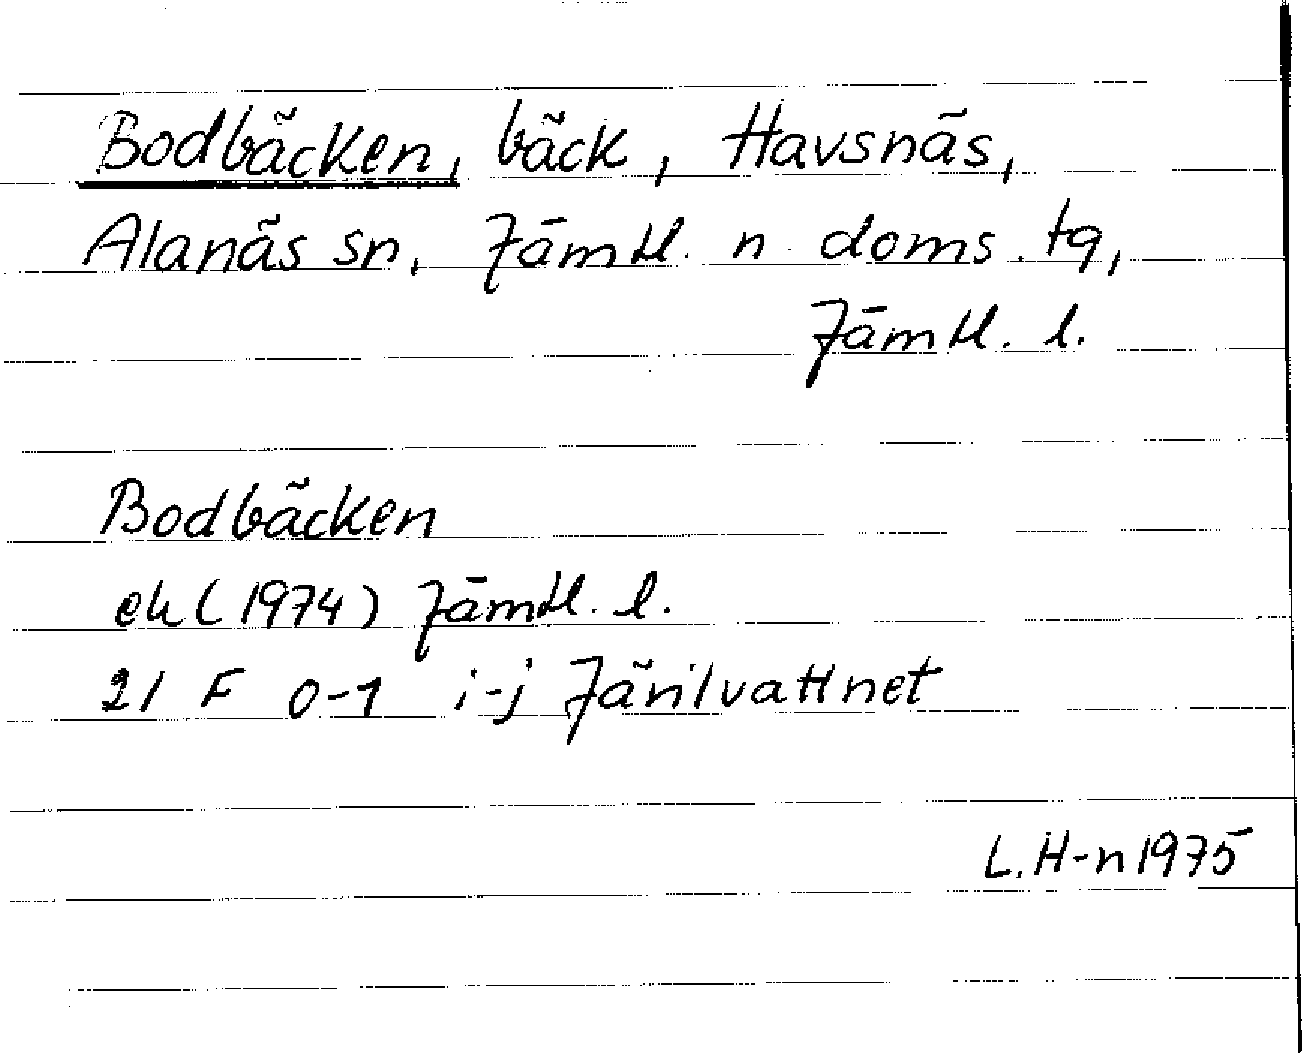 Bodbäcken, bäck, Havsnäs,
Alanäs sn, Jämtl. n. doms. tg,
Jämtl. l.
Bodbäcken
ek (1974) Jämtl. l.
21 F 0-1 i-j Järilvattnet
L. H-n 1975